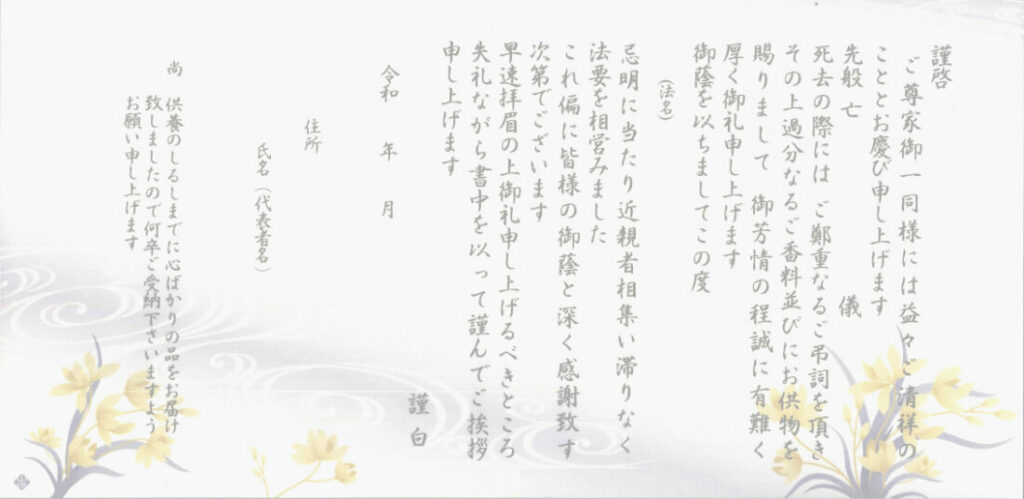 謹啓
ご尊家御一同様には益々ご清祥の
こととお慶び申し上げます
先般 亡 儀
死去の際には ご鄭重なるご弔詞を頂き
その上過分なるご香料並びにお供物を
賜りまして 御芳情の程誠に有難く
厚く御礼申し上げます
御蔭を以ちましてこの度
(法名)
忌明に当たり近親者相集い滞りなく
法要を相営みました
これ偏に皆様の御蔭と深く感謝致す
次第でございます
早速拝眉の上御礼申し上げるべきところ
失礼ながら書中を以って謹んでご挨拶
申し上げます
謹白
令和 年 月
住所
氏名(代表者名)
尚 供養のしるしまでに心ばかりの品をお届け
致しましたので何卒ご受納下さいますよう
お願い申し上げます